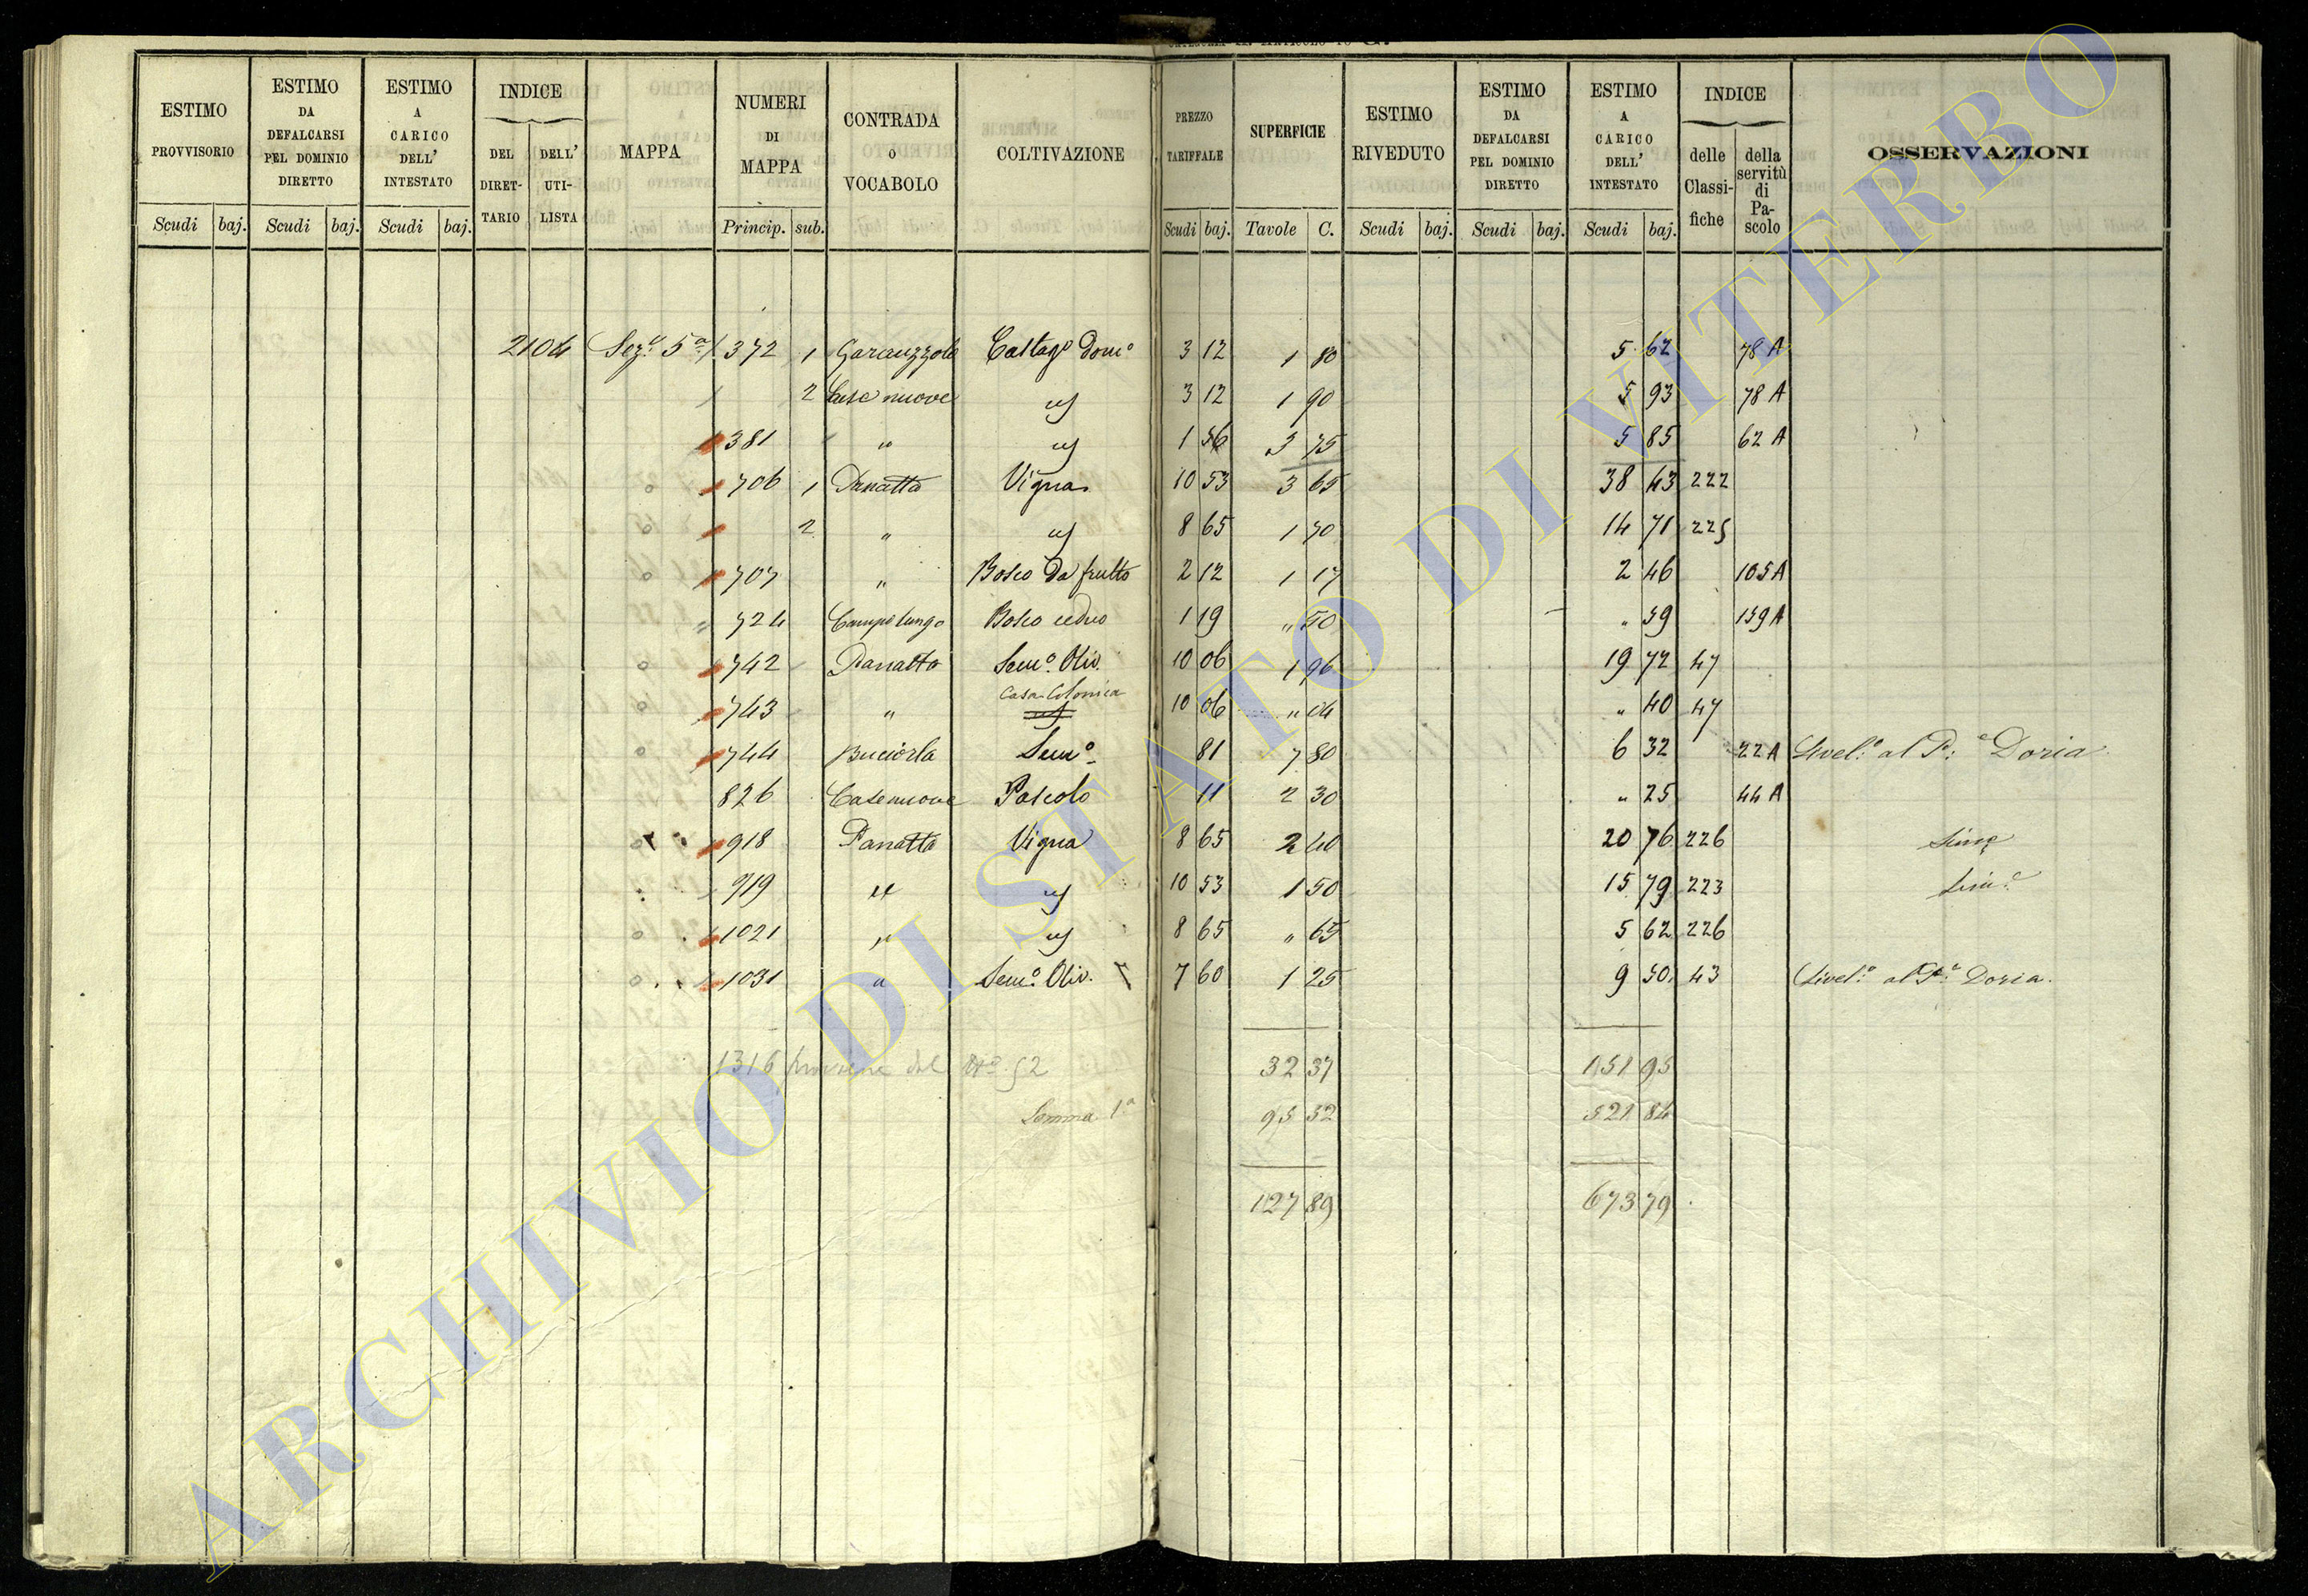 ESTIMO PROVVISORIO
ESTIMO DA DEFALCARSI PEL DOMINIO DIRETTO
ESTIMO A CARICO DELL' INTESTATO
INDICE
DEL DIRET-TARIO
DELL' UTI-LISTA
MAPPA
NUMERI DI MAPPA
CONTRADA o VOCABOLO
COLTIVAZIONE
PREZZO TARIFFALE
SUPERFICIE
ESTIMO RIVEDUTO
ESTIMO DA DEFALCARSI PEL DOMINIO DIRETTO
ESTIMO A CARICO DELL' INTESTATO
INDICE
delle Classi-fiche
della servitù di Pa-scolo
OSSERVAZIONI
Scudi baj. Scudi baj. Scudi baj. Princip. sub. Scudi baj. Tavole C. Scudi baj. Scudi baj. Scudi baj.
2104 Sez.e 5a 372 1 Castag.o Dom.o 3 12 1 80 5 62 78 A
2 Case nuove 3 12 1 90 5 93 78 A
381 " 1 56 3 75 5 85 62 A
706 1 Panatta Vigna 10 53 3 65 38 43 222
2 " 8 65 1 70 14 71 225
707 " Bosco da frutto 2 12 1 17 2 46 105 A
724 Campo lungo Bosco ceduo 1 19 " 50 " 59 159 A
742 Panatta Sem.o Oliv. 10 06 1 96 19 72 47
743 " Casa Colonica 10 06 " 04 " 40 47
744 Sem.o 81 7 80 6 32 22 A Livel.o al P.e Doria
826 Casenuove Pascolo 11 2 30 " 25 44 A
918 Panatta Vigna 8 65 2 40 20 76 226
919 " 10 53 1 50 15 79 223
1021 " 8 65 " 65 5 62 226
1031 " Sem.o Oliv. 7 60 1 25 9 50 43 Livel.o al P.e Doria.
1316 proviene dal N.o 52 32 37 151 95
Somma 1a 95 52 521 84
127 89 673 79
ARCHIVIO DI STATO DI VITERBO